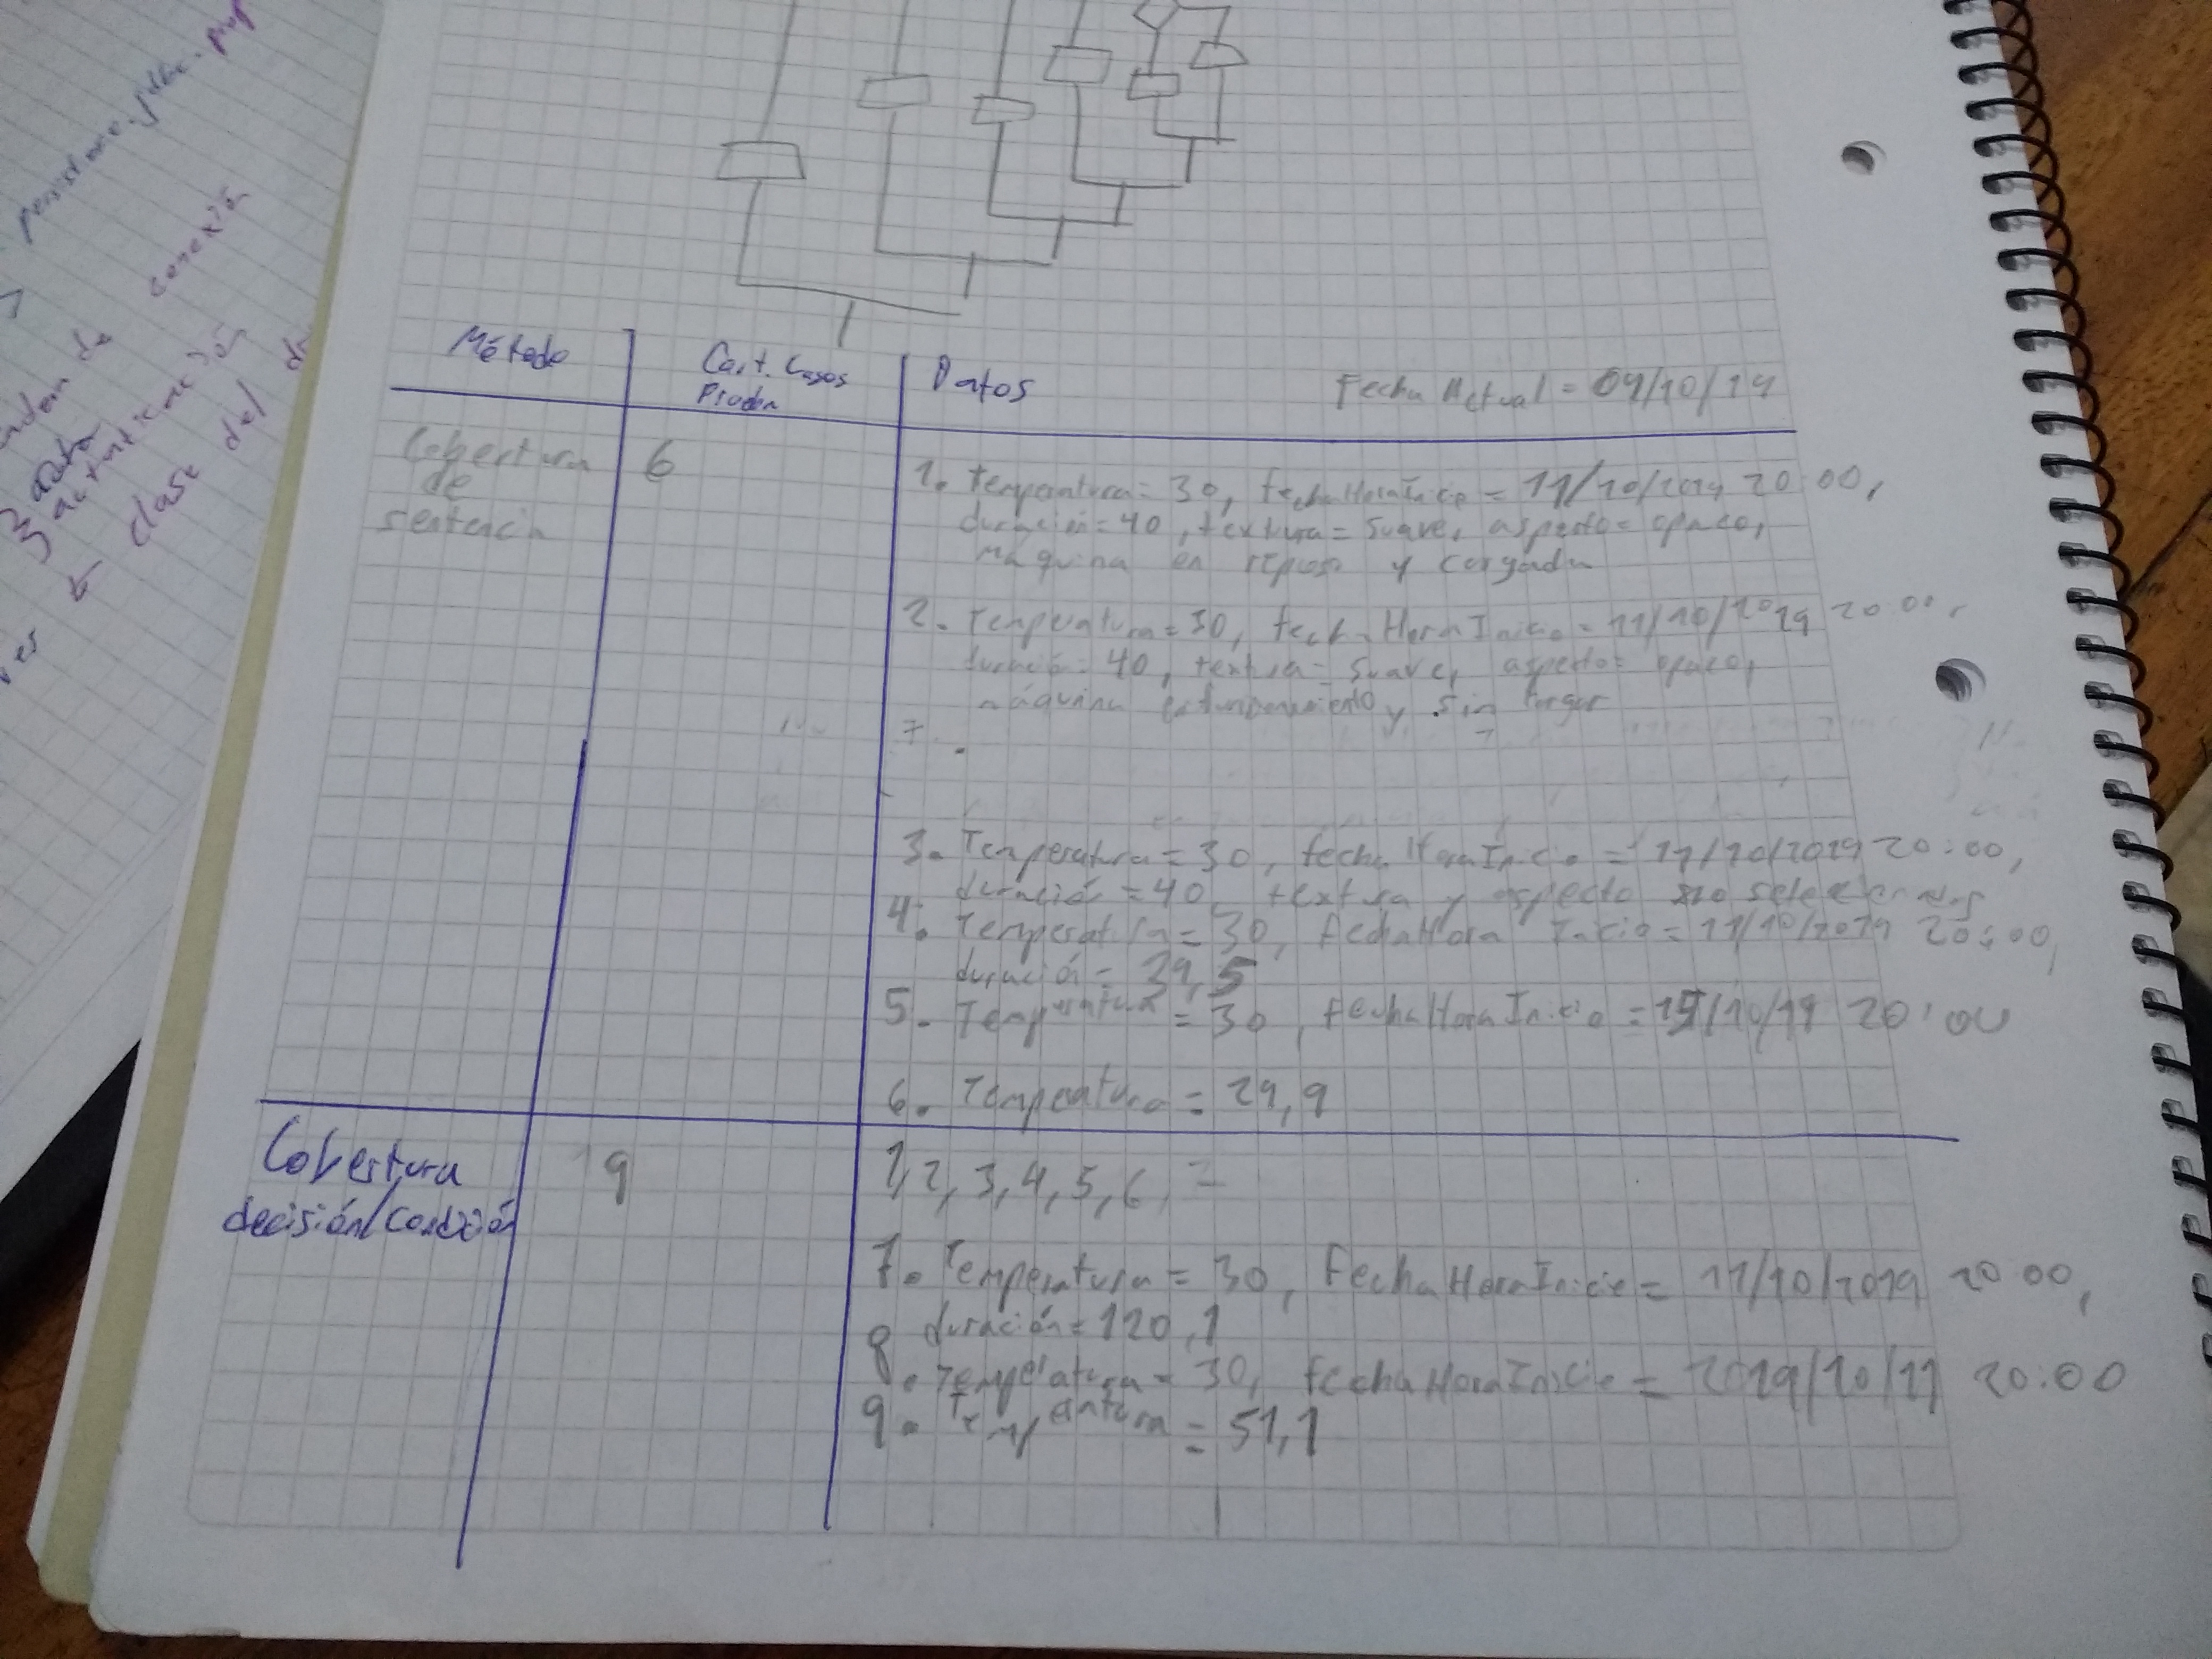 persistence.jdbc.
conexión
de
autenticación
clase del
Método
Cant. Casos
Prueba
Datos
Fecha Actual = 09/10/19
Cobertura
de
sentencia
6
1. Temperatura = 30, fechaHoraInicio = 11/10/2019 20:00,
duración = 40, textura = suave, aspecto = opaco,
máquina en reposo y cargada
2. Temperatura = 30, fechaHoraInicio = 11/10/2019 20:00,
duración = 40, textura = suave, aspecto = opaco,
máquina y sin cargar
3. Temperatura = 30, fechaHoraInicio = 11/10/2019 20:00,
duración = 40, textura y aspecto no seleccionados
4. Temperatura = 30, fechaHora Inicio = 11/10/2019 20:00,
duración = 39,5
5. Temperatura = 30, fechaHoraInicio = /10/19 20:00
6. Temperatura = 29,9
Cobertura
decisión/Condición
9
1, 2, 3, 4, 5, 6, =
7. Temperatura = 30, FechaHoraInicio = 11/10/2019 20:00,
duración = 120,1
8. Temperatura = 30, fechaHoraInicio = 2019/10/11 20:00
9. Temperatura = 51,1